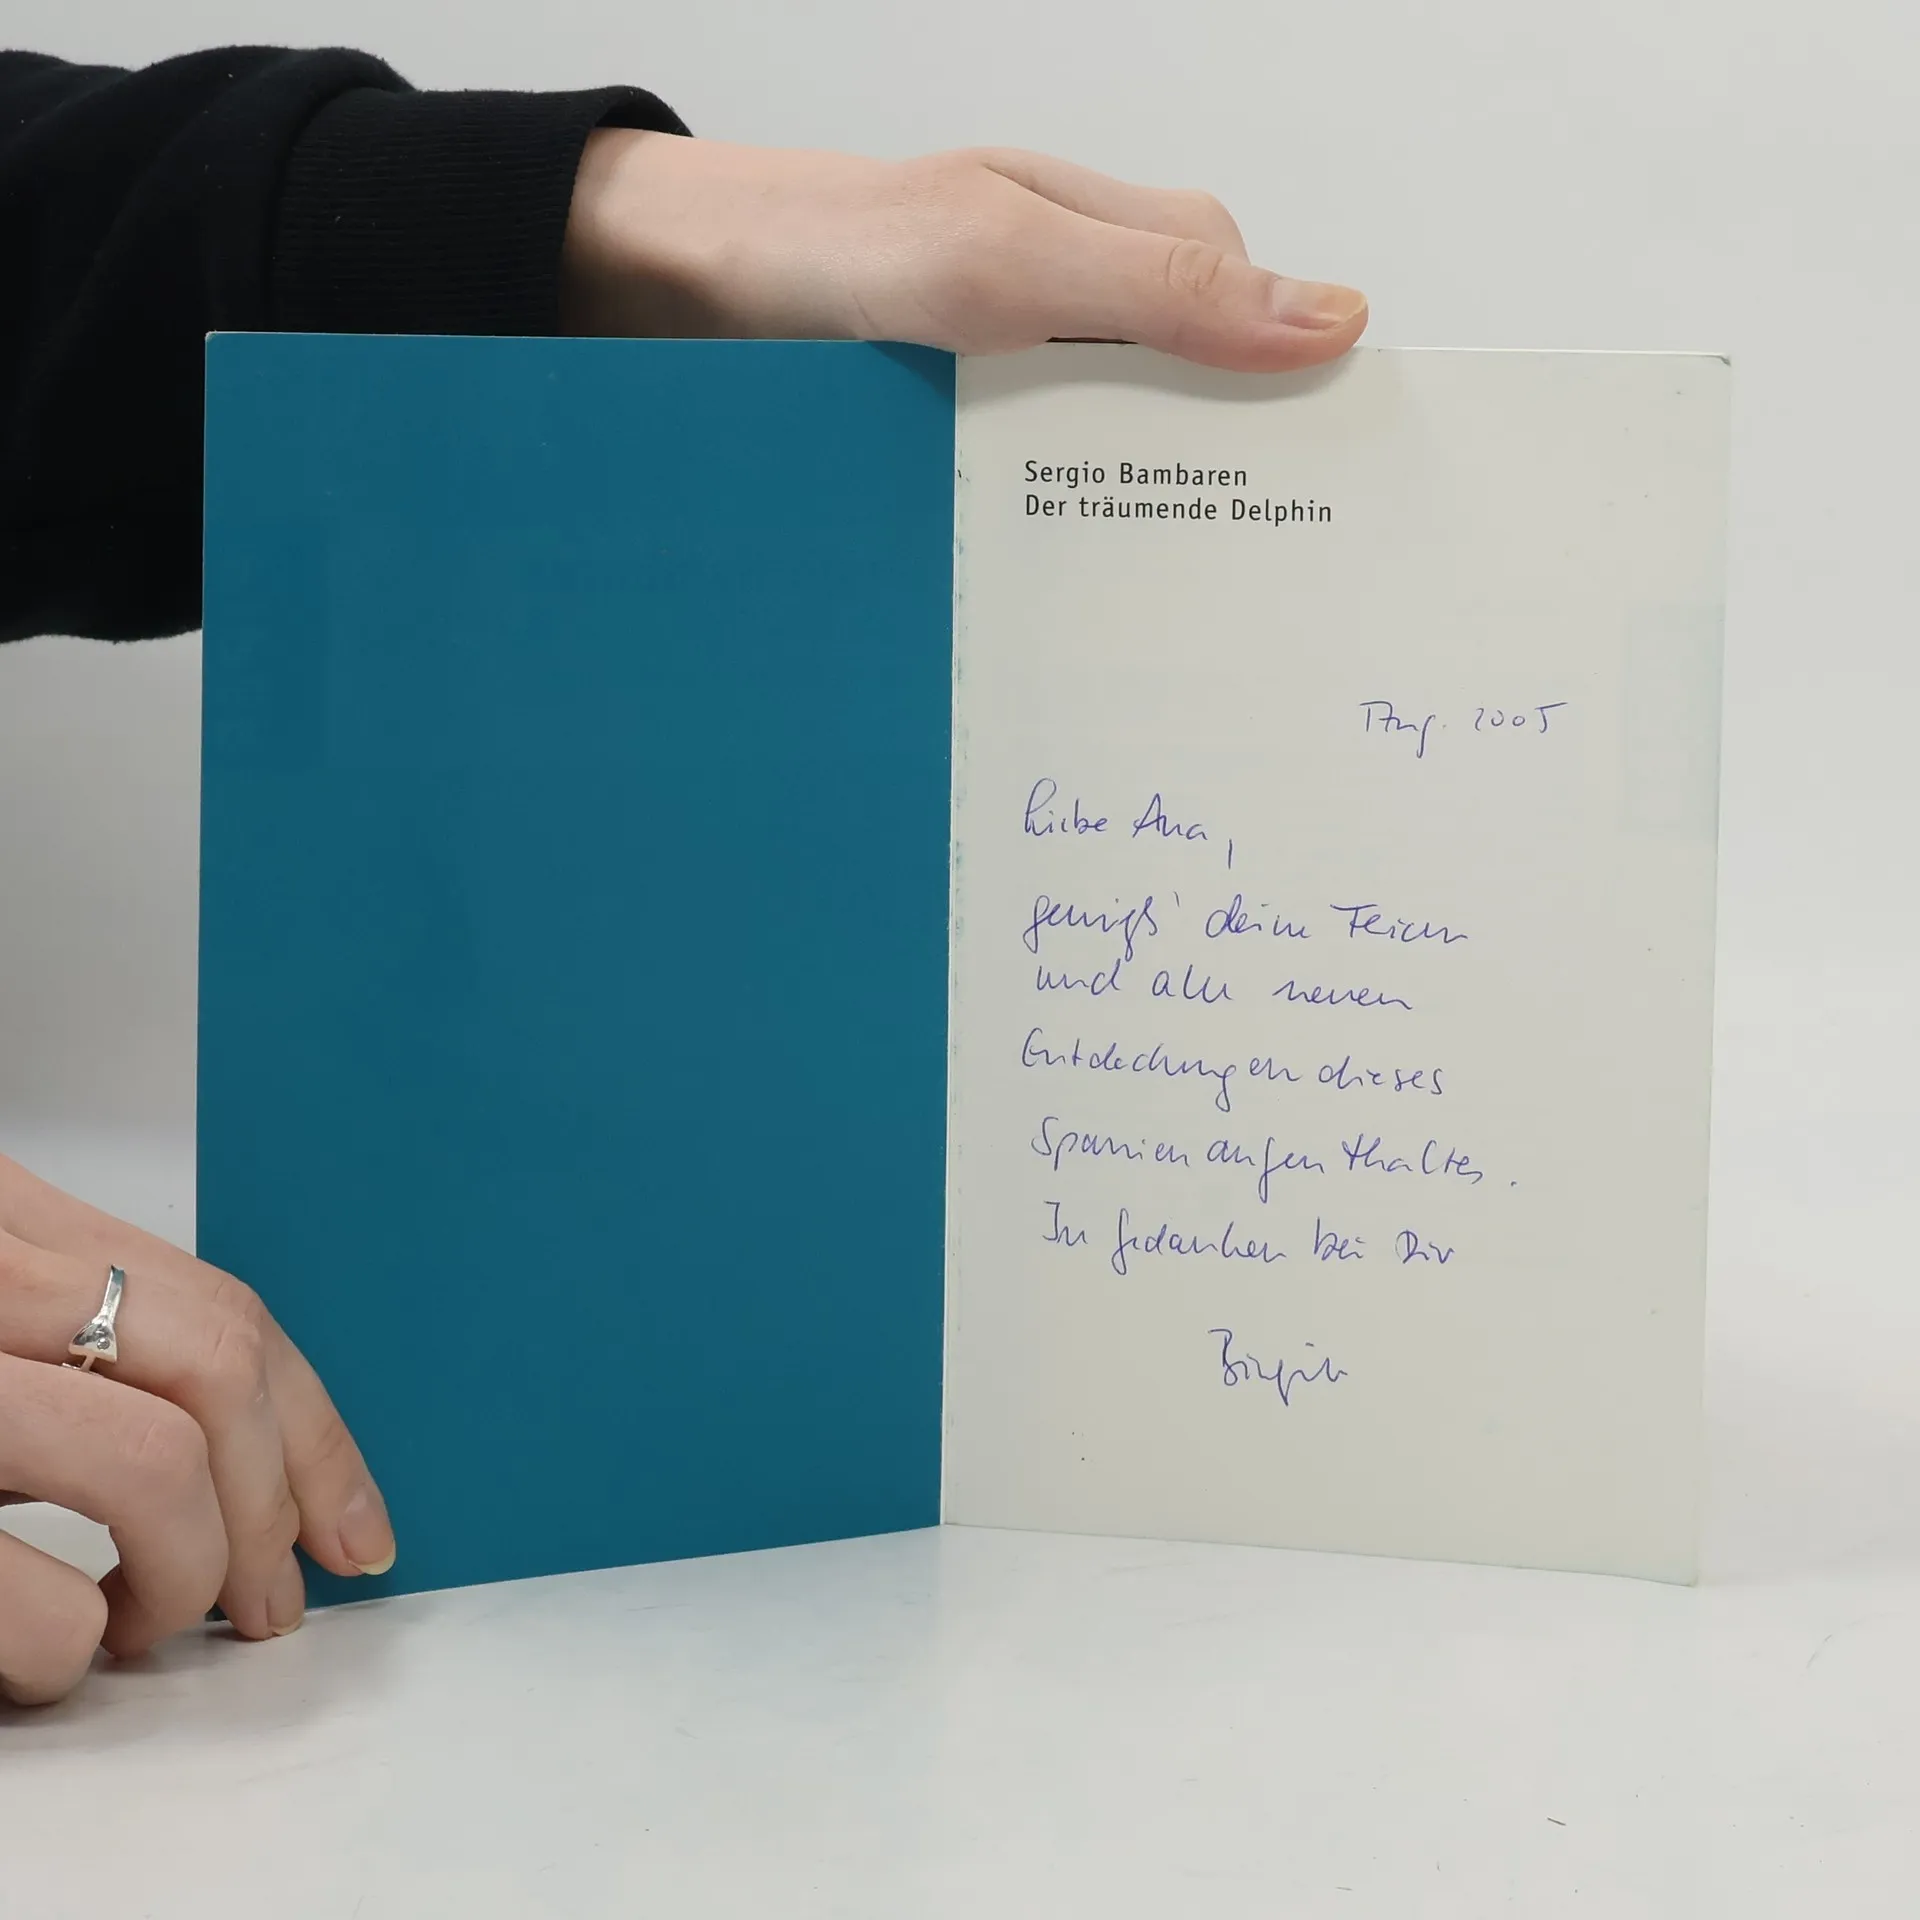 Sergio Bambaren
Der träumende Delphin
Aug. 2005
Liebe Ana,
genieß' deine Ferien
und alle neuen
Entdeckungen dieses
Spanienaufenthaltes.
In Gedanken bei Dir
Birgit